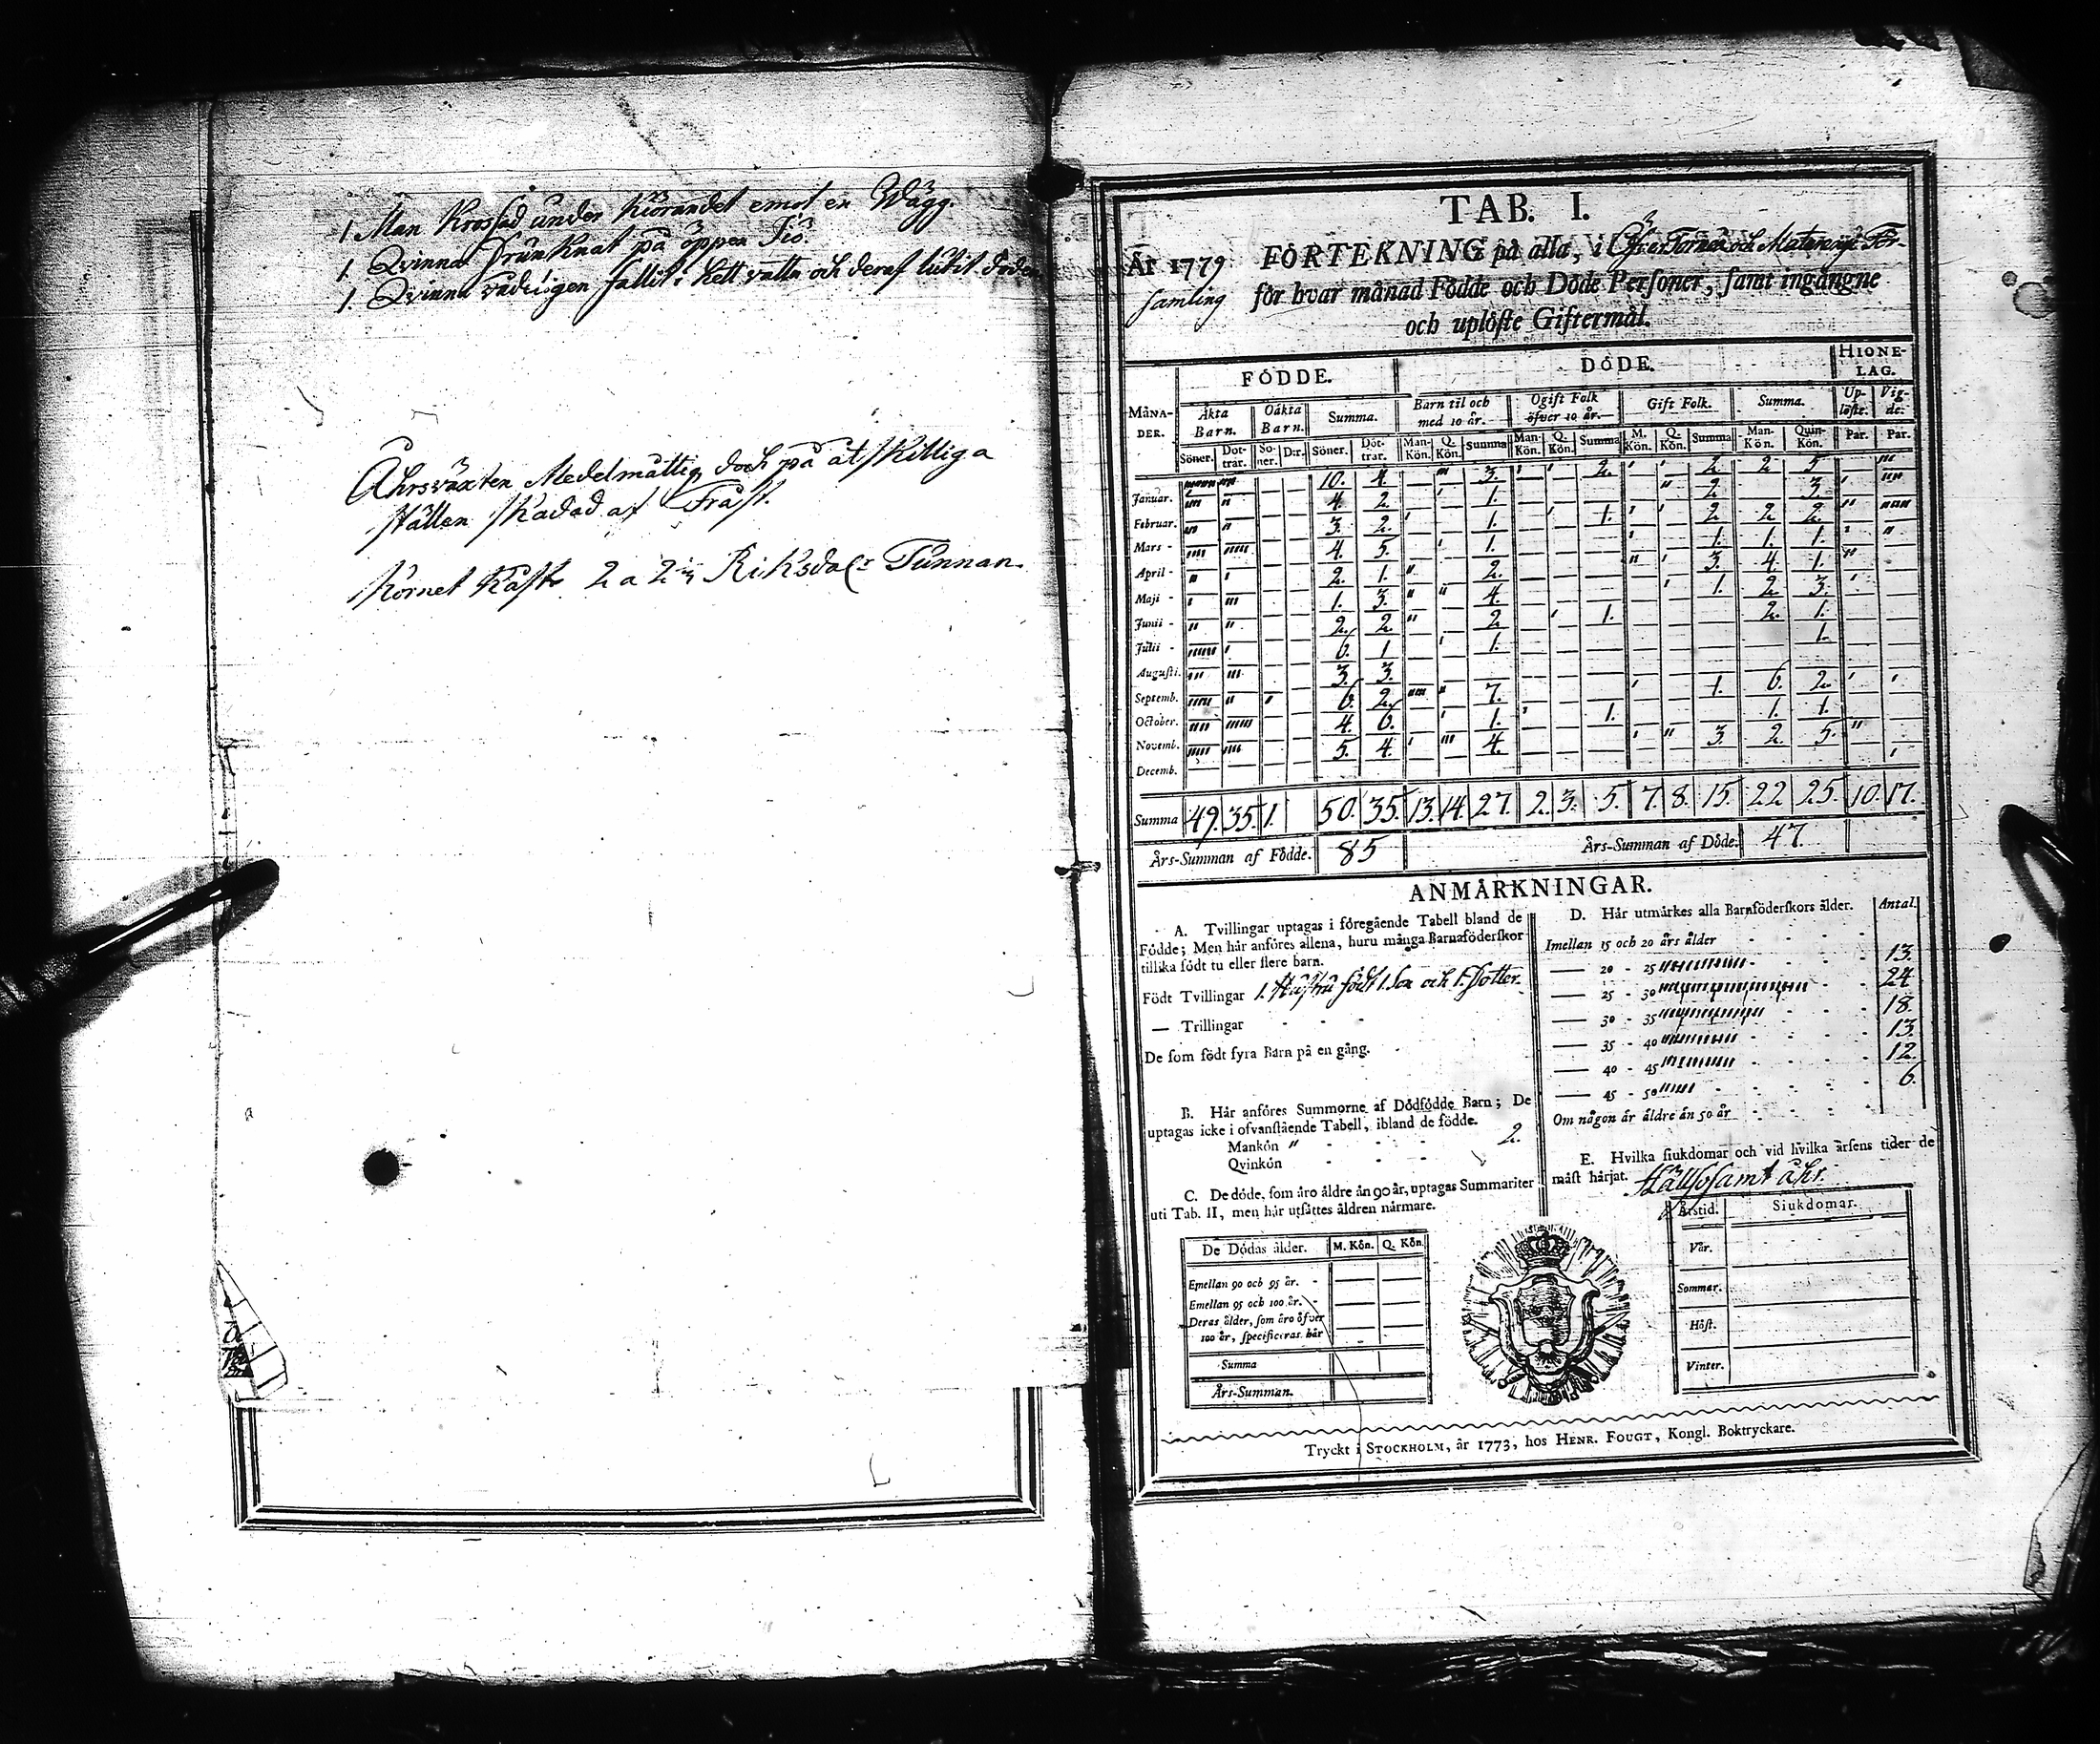 1 Man Krossad under Kiörandet emot en Wägg.
1. Qvinna Drunknat på öppen Siö.
1. Qvinna fallit i hett vattn och deraf lidit döden
Åhrsväxten Medelmåttig doch på åtskilliga
ställen skadad af Fråst.
Kornet Kåstr 2 a 2 Riksdalr Tunnan.
TAB. I.
År 1779 FÖRTEKNING på alla, i Öfver Torneå och Matarengi För-
samling för hvar månad Födde och Döde Personer, samt ingångne
och uplöste Giftermål.
MÅNA-DER. FÖDDE. DÖDE. HIONE-LAG.
Äkta Barn. Oäkta Barn. Summa. Barn til och med 10 år. Ogift Folk öfver 10 år. Gift Folk. Summa. Up-löste. Vig-de.
Söner. Döt-trar. Sö-ner. D:r. Söner. Döt-trar. Man-Kön. Q. Kön. Summa Man-Kön. Q. Kön. Summa M. Kön. Q. Kön. Summa Man-Kön. Quin-Kön. Par. Par.
Januar. 10. 4. 3. 2. 2. 2 5
Februar. 4. 2. 1. 2 3.
Mars - 3. 2. 1. 1. 2 2 2.
April - 4. 5. 1. 1. 1. 1.
Maji - 2. 1. 2. 3. 4. 1.
Junii - 1. 3. 4. 1. 2 3.
Julii - 2. 2. 2 1. 2. 1.
Augusti. 6. 1 1. 1.
Septemb. 3. 3.
October. 6. 2. 7. 1. 6. 2.
Novemb. 4. 6. 1. 1. 1. 1.
Decemb. 5. 4. 4. 3. 2. 5.
Summa 49. 35. 1. 50. 35. 13. 14. 27. 2. 3. 5. 7. 8. 15. 22 25. 10. 17.
Års-Summan af Födde. 85 Års-Summan af Döde. 47
ANMÄRKNINGAR.
A. Tvillingar uptagas i föregående Tabell bland de
Födde; Men här anföres allena, huru många Barnaföderskor
tillika födt tu eller flere barn.
Födt Tvillingar 1. Hustru födt 1. Son och 1. Dotter.
— Trillingar
De som födt fyra Barn på en gång.
B. Här anföres Summorne af Dödfödde Barn; De
uptagas icke i ofvanstående Tabell, ibland de födde.
Mankön " 2.
Qvinkön
C. De döde, som äro äldre än 90 år, uptagas Summariter
uti Tab. II, men här utsättes åldren närmare.
De Dödas ålder. M. Kön. Q. Kön.
Emellan 90 och 95 år.
Emellan 95 och 100 år.
Deras ålder, som äro öfver
100 år, specificeras här
Summa
Års-Summan.
D. Här utmärkes alla Barnföderskors ålder. Antal.
Imellan 15 och 20 års ålder
— 20 - 25 13.
— 25 - 30 24
— 30 - 35 18.
— 35 - 40 13.
— 40 - 45 12.
— 45 - 50 6.
Om någon är äldre än 50 år
E. Hvilka siukdomar och vid hvilka årsens tider de
mäst härjat. Hällsosamt åhr.
Årstid. Siukdomar.
Vår.
Sommar.
Höst.
Vinter.
Tryckt i STOCKHOLM, år 1773, hos HENR. FOUGT, Kongl. Boktryckare.